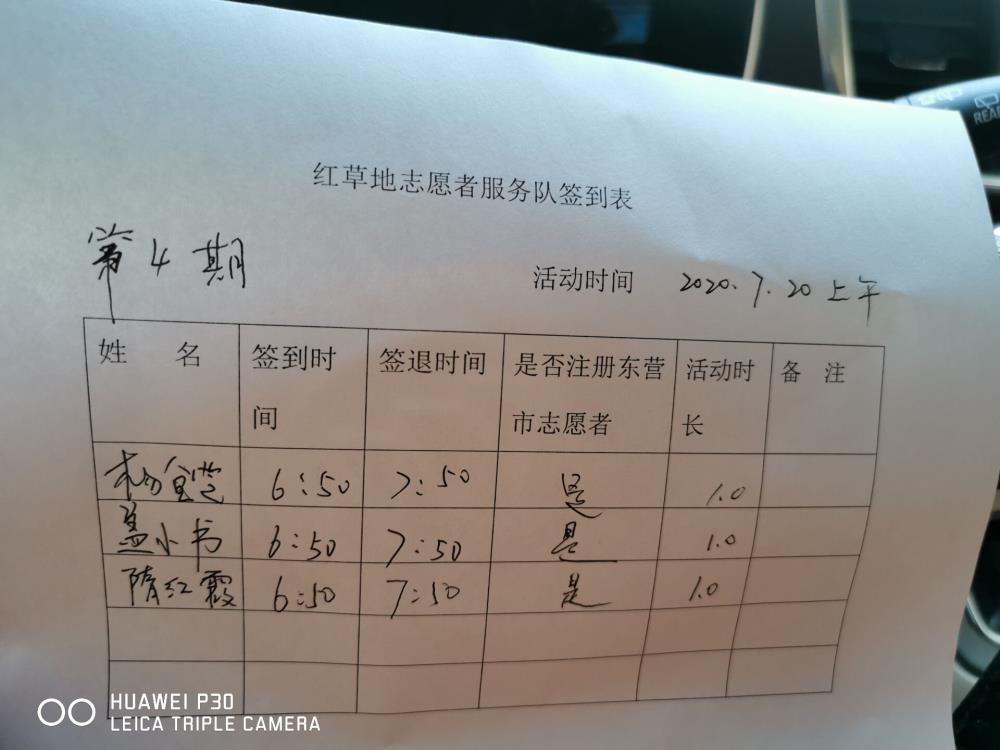 红草地志愿者服务队签到表
第4期 活动时间 2020.7.20上午
姓 名 签到时间 签退时间 是否注册东营市志愿者 活动时长 备 注
杨 6:50 7:50 是 1.0
盖小书 6:50 7:50 是 1.0
隋红霞 6:50 7:50 是 1.0
HUAWEI P30
LEICA TRIPLE CAMERA
REAR